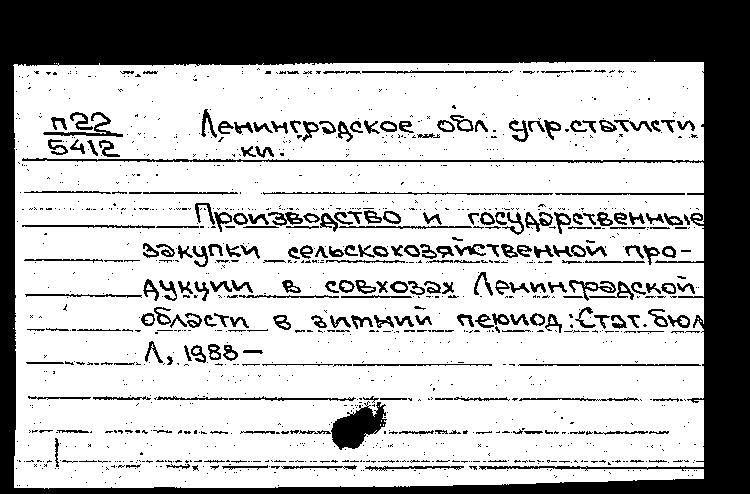 п22 Ленинградское обл. упр. статисти-
5412 ки.
Производство и государственные
закупки сельскохозяйственной про-
дукции в совхозах Ленинградской
области в зимний период: Стат. бюл
Л, 1988 —